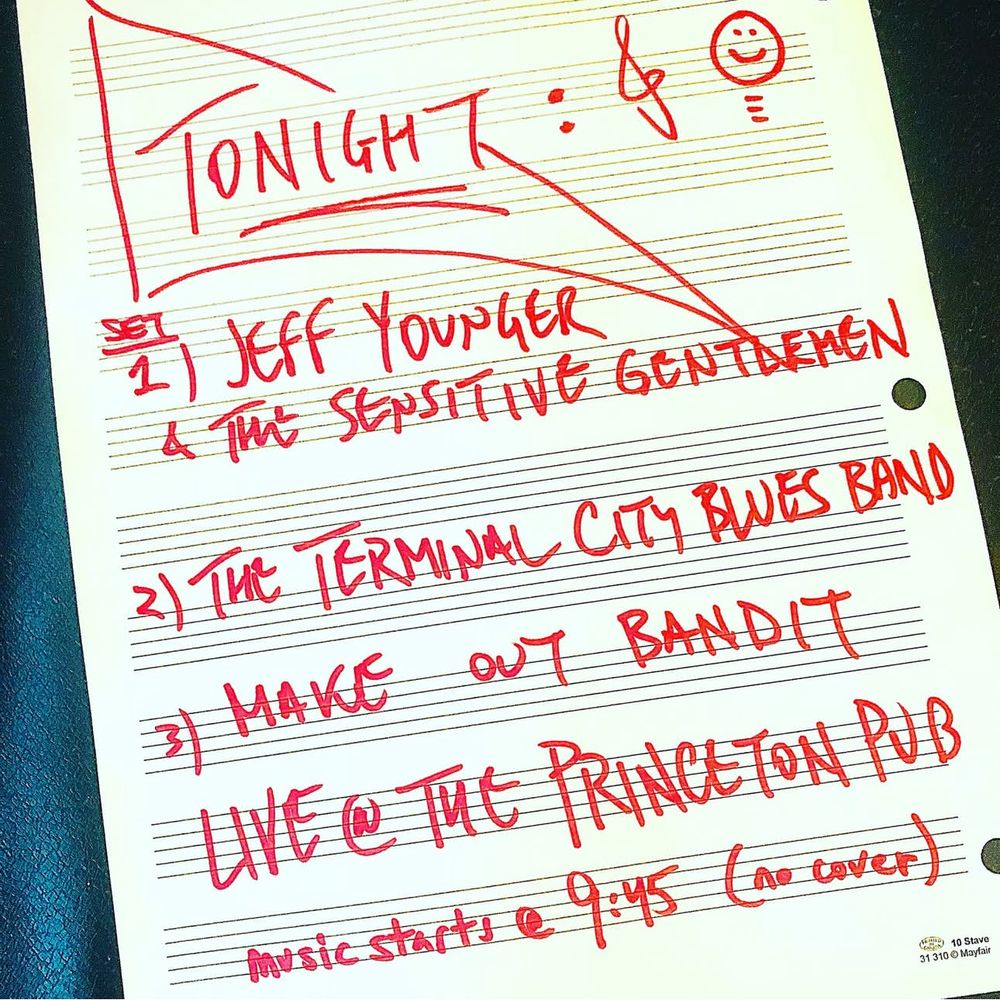 TONIGHT:
SET
1) JEFF YOUNGER
& THE SENSITIVE GENTLEMEN
2) THE TERMINAL CITY BLUES BAND
3) MAKE OUT BANDIT
LIVE @ THE PRINCETON PUB
music starts @ 9:45 (no cover)
10 Stave
31 310 © Mayfair